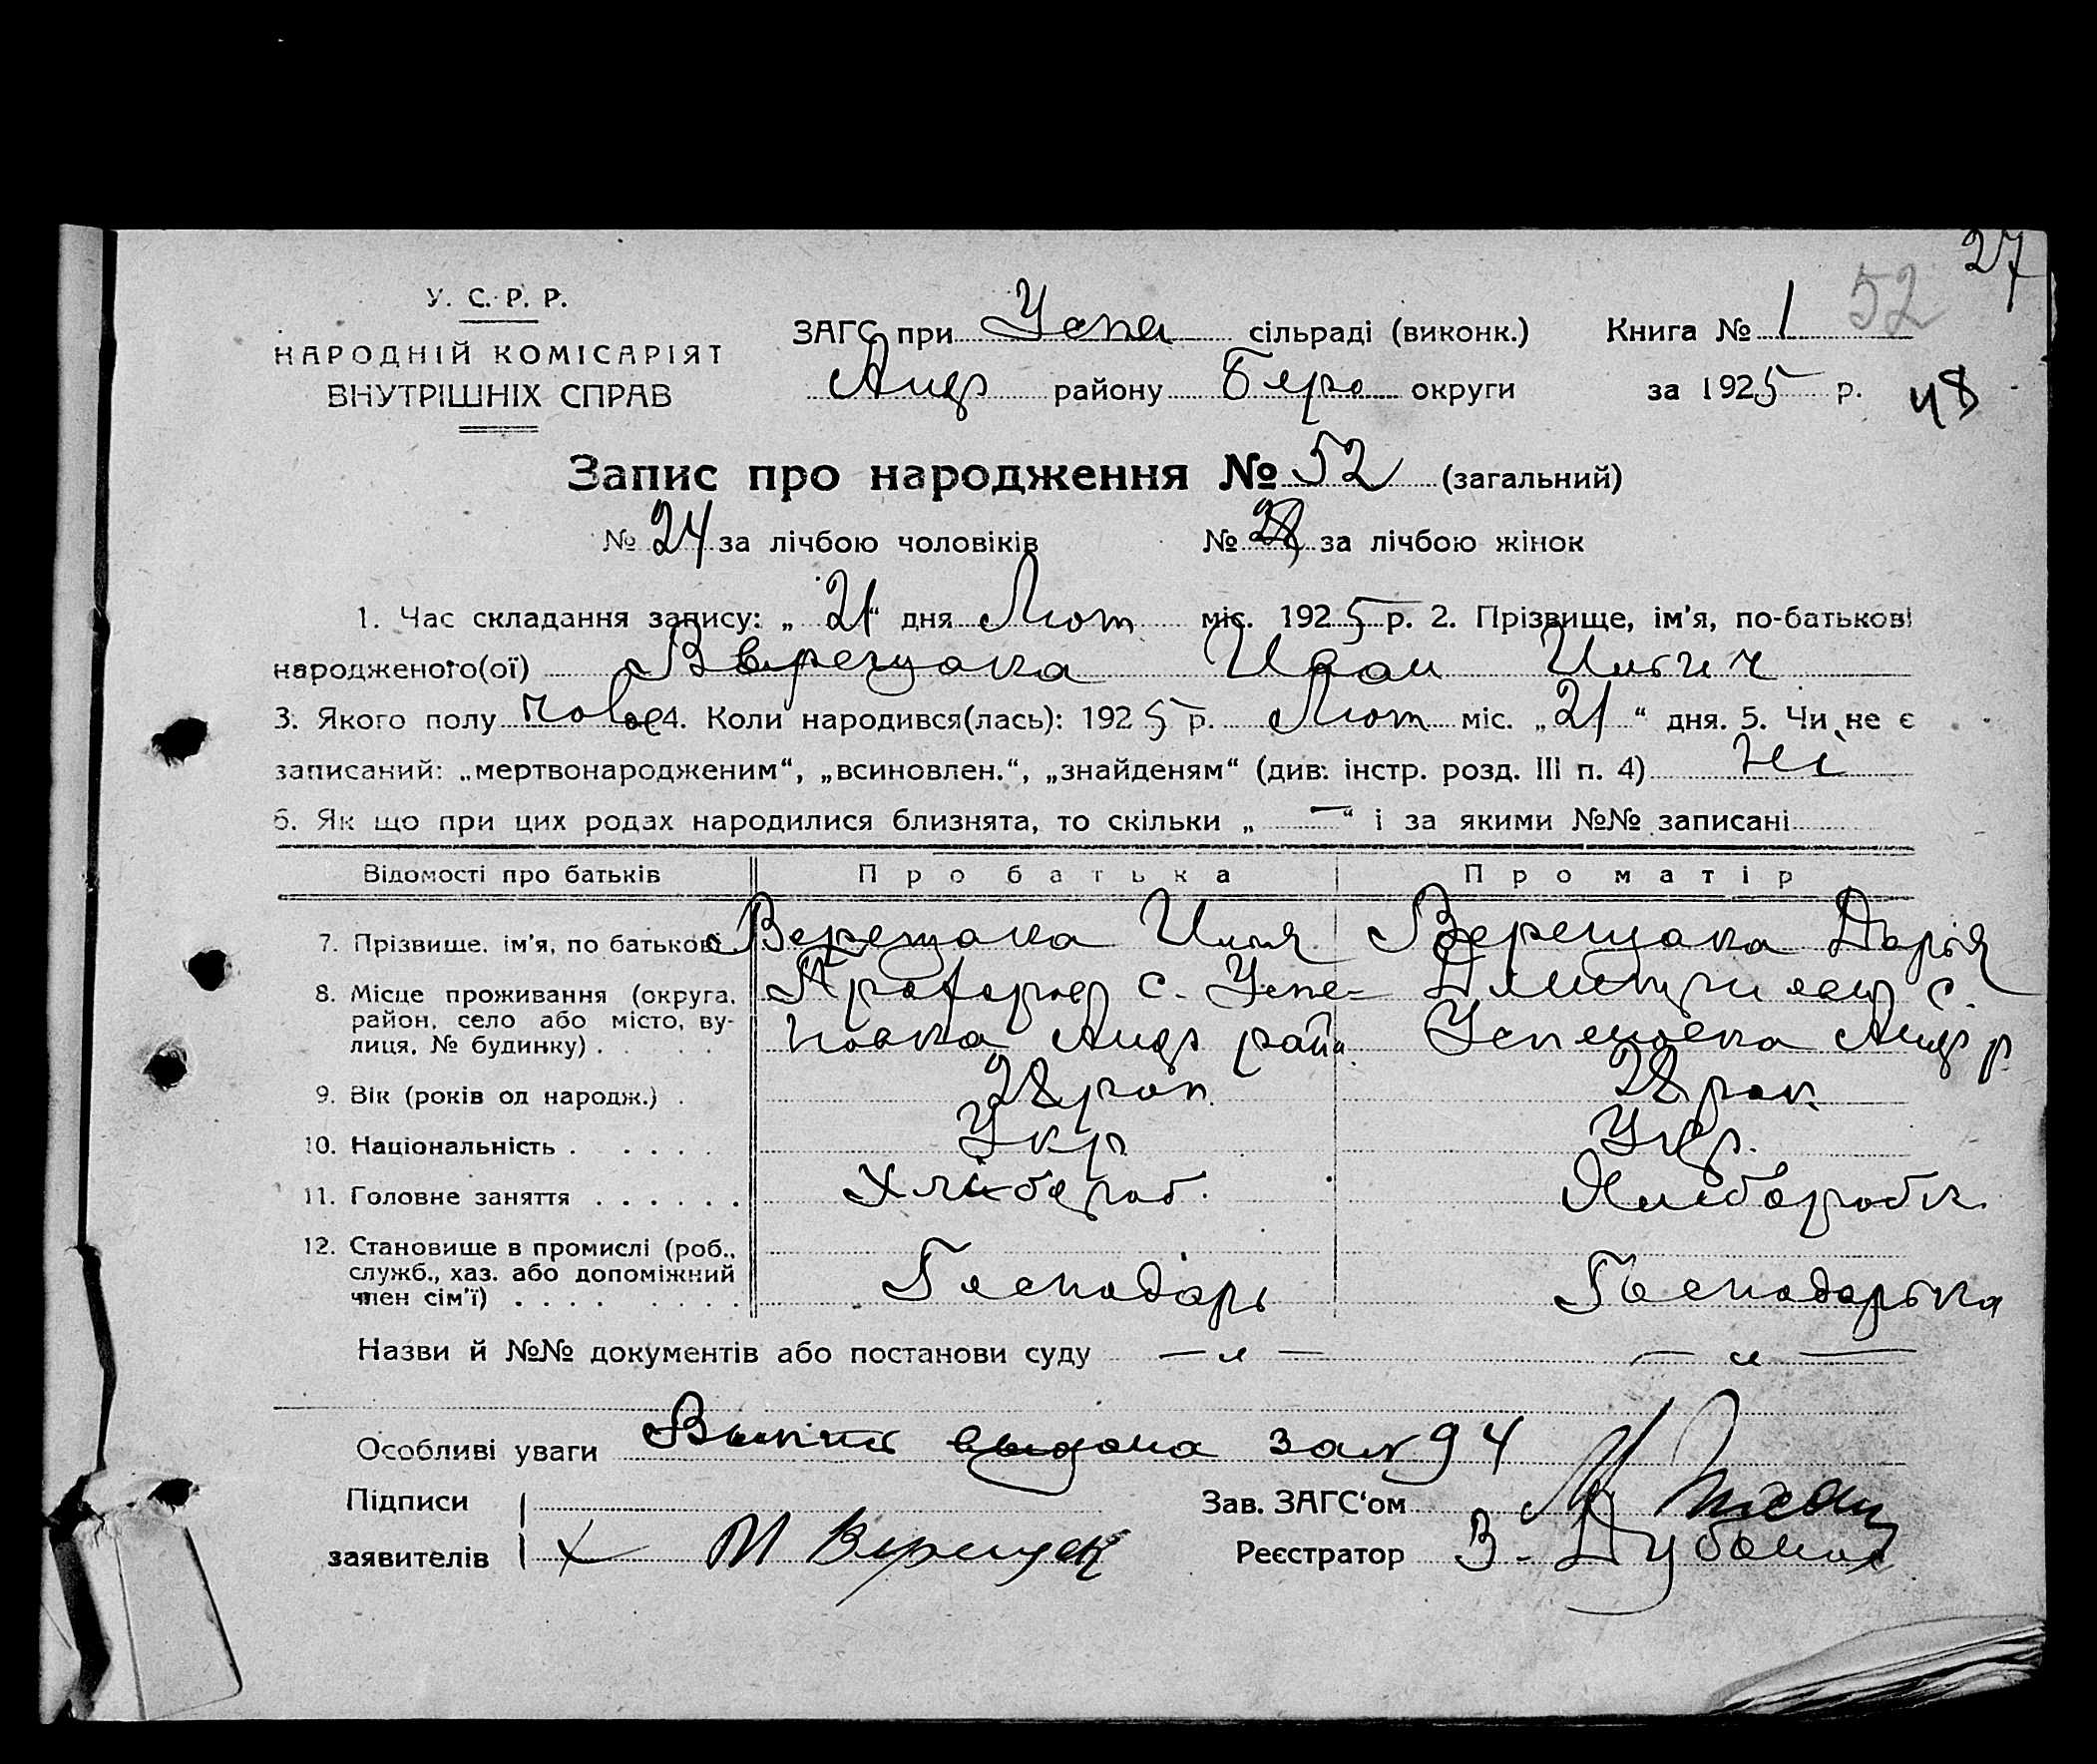 27
52
У. С. Р. Р.
НАРОДНІЙ КОМІСАРІЯТ
ВНУТРІШНІХ СПРАВ
ЗАГС при Успен сільраді (виконк.) Книга № 1
Андр району Бердо округи за 1925 р. 48
Запис про народження № 52 (загальний)
№ 24 за лічбою чоловіків № 28 за лічбою жінок
1. Час складання запису: „21“ дня Лют міс. 1925 р. 2. Прізвище, ім'я, по-батькові
народженого(ої) Верещака Иван Ильич
3. Якого полу чолов 4. Коли народився(лась): 1925 р. Лют міс. „21“ дня. 5. Чи не є
записаний: „мертвонародженим“, „всиновлен.“, „знайденям“ (див: інстр. розд. III п. 4) Ні
6. Як що при цих родах народилися близнята, то скільки „—“ і за якими №№ записані
Відомості про батьків Про батька Про матір
7. Прізвище, ім'я, по батькові Верещака Илля Верещака Дарья
8. Місце проживання (округа, с. Успе- с.
район, село або місто, ву-
лиця, № будинку) новка Андр райн. Успеновка Андр р
9. Вік (років од народж.) 28 рок. 28 рок.
10. Національність Укр Укр.
11. Головне заняття Хлібороб. Хлібороб
12. Становище в промислі (роб.,
служб., хаз. або допоміжний
член сім'ї) Господарь Господарька
Назви й №№ документів або постанови суду — " — — " —
Особливі уваги Выпись выдана за № 94
Підписи Зав. ЗАГС'ом
заявителів х Верещак Реєстратор